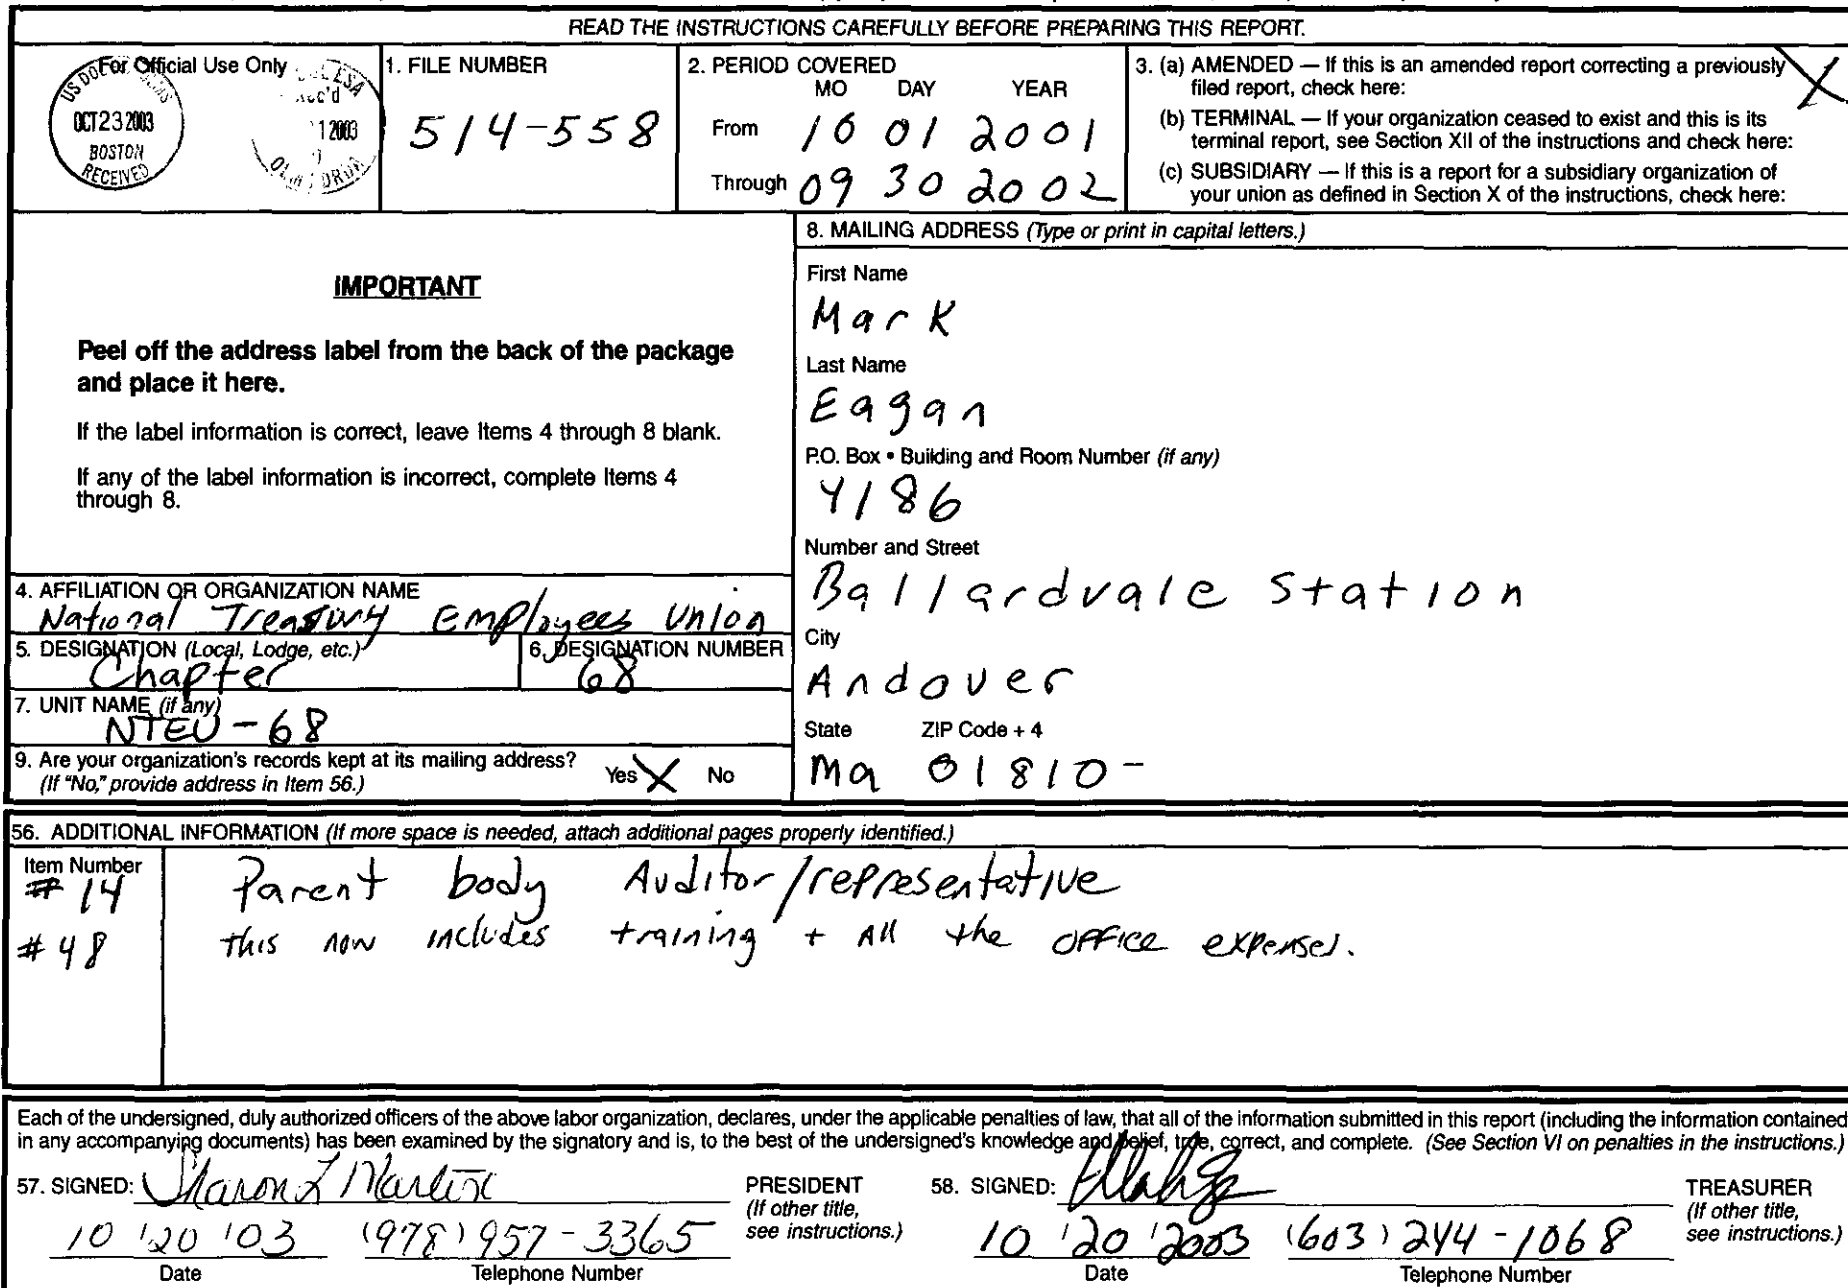 READ THE INSTRUCTIONS CAREFULLY BEFORE PREPARING THIS REPORT.
For Official Use Only
US DOL
OCT 23 2003
BOSTON
RECEIVED
ESA
Rec'd
1 2003
1. FILE NUMBER
514-558
2. PERIOD COVERED
MO DAY YEAR
From 10 01 2001
Through 09 30 2002
3. (a) AMENDED — If this is an amended report correcting a previously
filed report, check here: X
(b) TERMINAL — If your organization ceased to exist and this is its
terminal report, see Section XII of the instructions and check here:
(c) SUBSIDIARY — If this is a report for a subsidiary organization of
your union as defined in Section X of the instructions, check here:
IMPORTANT
Peel off the address label from the back of the package
and place it here.
If the label information is correct, leave Items 4 through 8 blank.
If any of the label information is incorrect, complete Items 4
through 8.
4. AFFILIATION OR ORGANIZATION NAME
National Treasury Employees Union
5. DESIGNATION (Local, Lodge, etc.)
Chapter
6. DESIGNATION NUMBER
68
7. UNIT NAME (if any)
NTEU - 68
9. Are your organization's records kept at its mailing address?
(If "No," provide address in Item 56.)
Yes X No
8. MAILING ADDRESS (Type or print in capital letters.)
First Name
Mark
Last Name
Eagan
P.O. Box • Building and Room Number (if any)
4186
Number and Street
Ballardvale Station
City
Andover
State ZIP Code + 4
Ma 01810-
56. ADDITIONAL INFORMATION (If more space is needed, attach additional pages properly identified.)
Item Number
# 14 Parent body Auditor/representative
# 48 this now includes training + All the OFFICE expenses.
Each of the undersigned, duly authorized officers of the above labor organization, declares, under the applicable penalties of law, that all of the information submitted in this report (including the information contained
in any accompanying documents) has been examined by the signatory and is, to the best of the undersigned's knowledge and belief, true, correct, and complete. (See Section VI on penalties in the instructions.)
57. SIGNED: Sharon L Martin
PRESIDENT
(If other title,
see instructions.)
10 / 20 / 03 (978) 957-3365
Date Telephone Number
58. SIGNED:
TREASURER
(If other title,
see instructions.)
10 / 20 / 2003 (603) 244-1068
Date Telephone Number